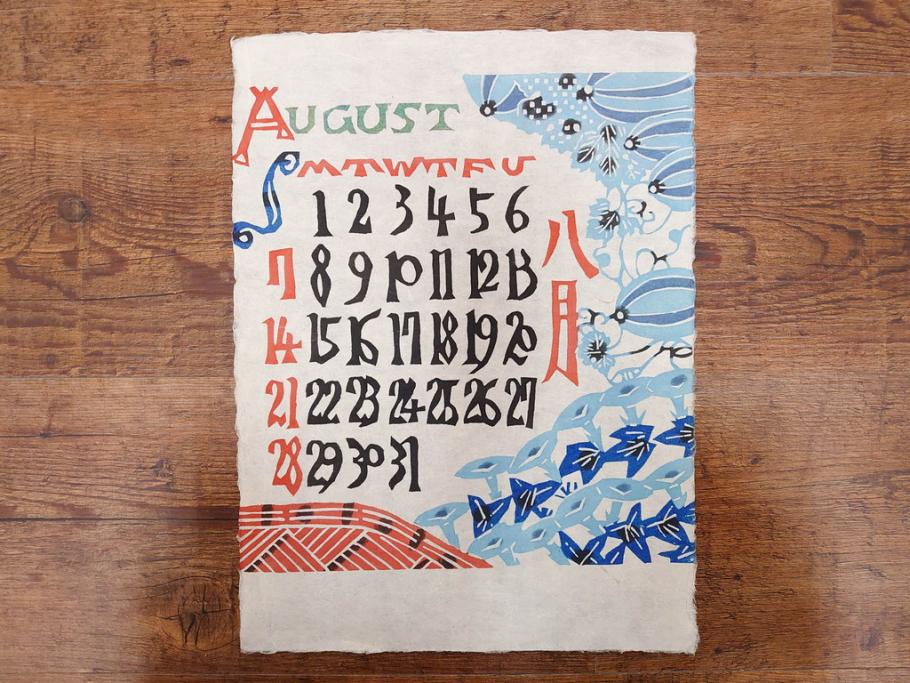 AUGUST
S M T W T F S
1 2 3 4 5 6
7 8 9 10 11 12 13
14 15 16 17 18 19 20
21 22 23 24 25 26 27
28 29 30 31
八月